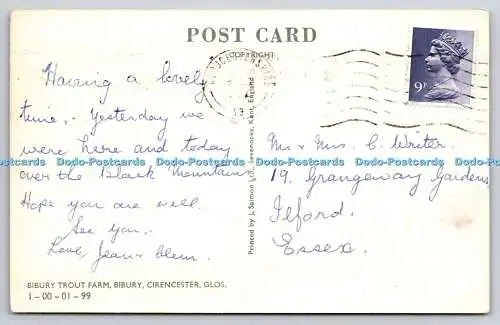 POST CARD
COPYRIGHT
Having a lovely
time,. Yesterday we
were here and today
over the Black Mountains
Hope you are well.
See you.
Love, Jean &
9P
Mr & Mrs. C. Writer.
19. Grangeway Gardens
Ilford.
Essex.
Printed by J. Salmon Ltd., Sevenoaks, Kent, England
Dodo-Postcards Dodo-Postcards Dodo-Postcards Dodo-Postcards Dodo-Postcards Dodo-Postcards
BIBURY TROUT FARM, BIBURY, CIRENCESTER, GLOS.
1-00-01-99